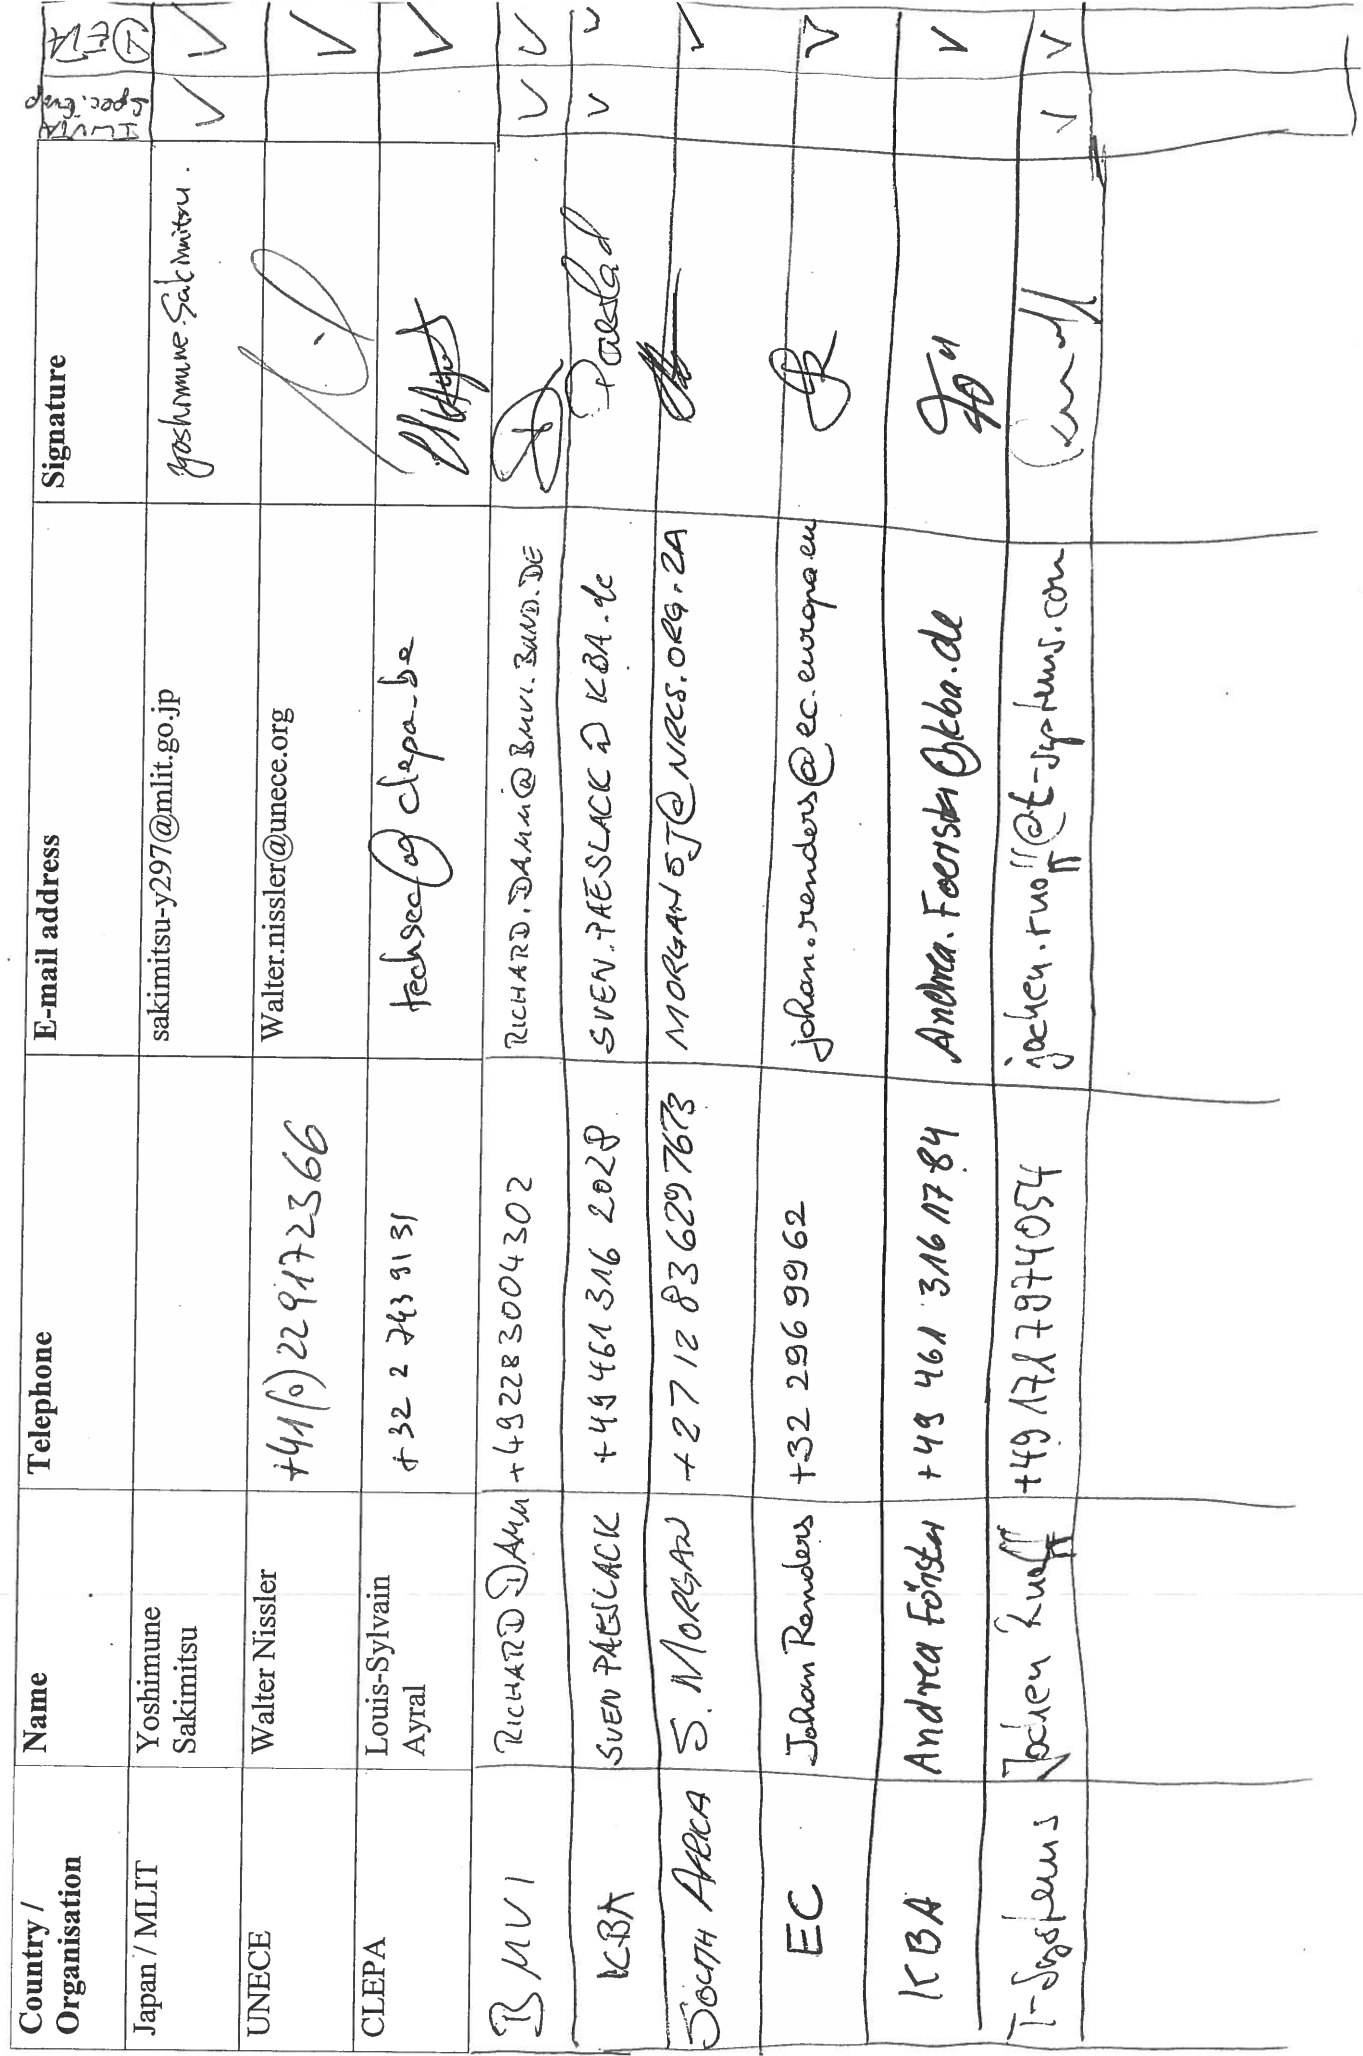 Country / Organisation Name Telephone E-mail address Signature IWVTA Spec. Group DETA
Japan / MLIT Yoshimune Sakimitsu sakimitsu-y297@mlit.go.jp Yoshimune Sakimitsu. V V
UNECE Walter Nissler +41(0)229172366 Walter.nissler@unece.org V
CLEPA Louis-Sylvain Ayral +32 2 743 9131 techsec@clepa.be V
BMVI RICHARD DAMM +492283004302 RICHARD.DAMM@BMVI.BUND.DE V V
KBA SVEN PAESLACK +49 461 316 2028 SVEN.PAESLACK@KBA.de V V
SOUTH AFRICA S. MORGAN +27 12 83 629 7673 MORGANSJ@NRCS.ORG.ZA V
EC Johan Renders +32 296 9962 johan.renders@ec.europa.eu V
KBA Andrea Förster +49 461 316 1784 Andrea.Foerster@kba.de V
T-Systems Jochen Ruoff +49 171 7974054 jochen.ruoff@t-systems.com V V